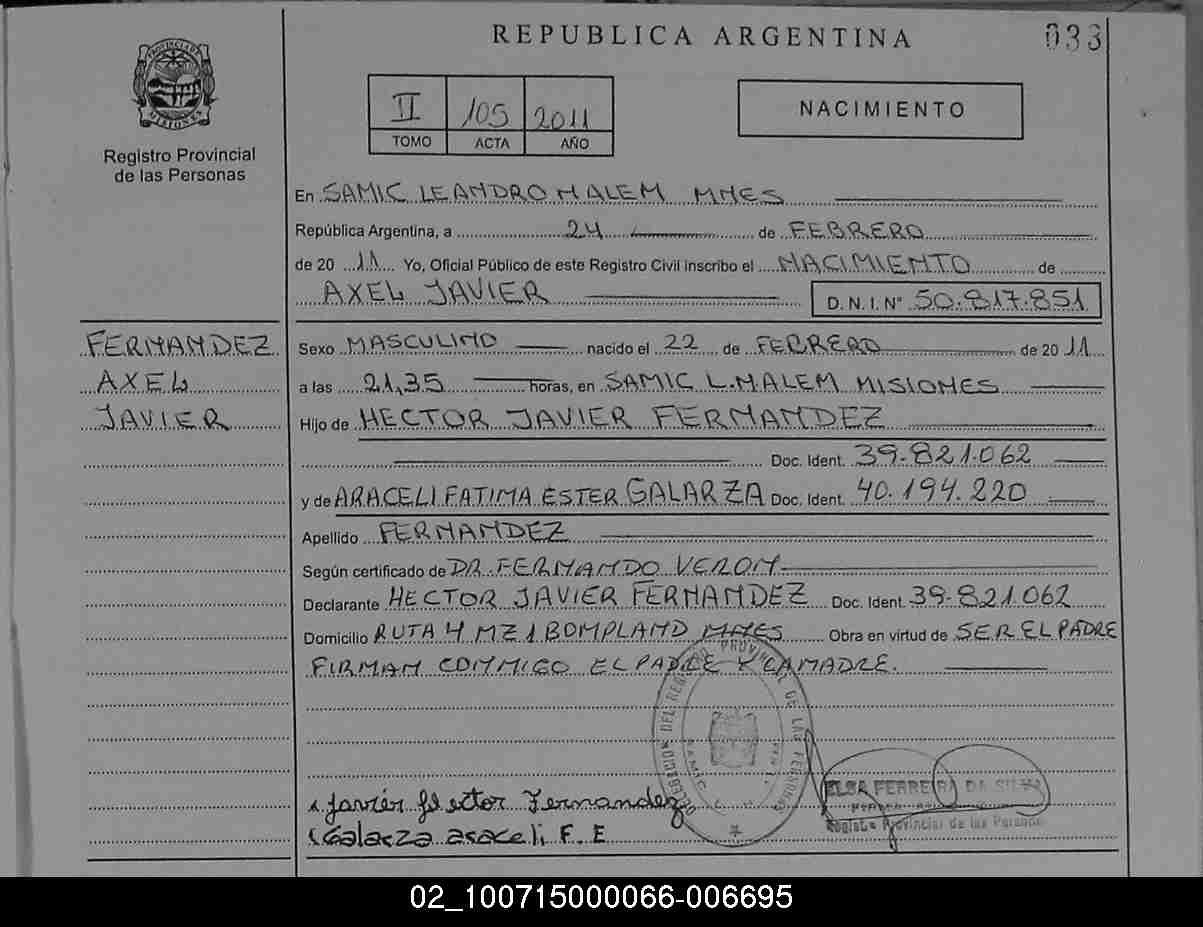 REPUBLICA ARGENTINA
033
PROVINCIA DE MISIONES
Registro Provincial
de las Personas
II 105 2011
TOMO ACTA AÑO
NACIMIENTO
En SAMIC LEANDRO N ALEM MNES
República Argentina, a 24 de FEBRERO
de 20 11 Yo, Oficial Público de este Registro Civil inscribo el NACIMIENTO de
AXEL JAVIER D.N.I. Nº 50.817.851
FERNANDEZ
AXEL
JAVIER
Sexo MASCULINO nacido el 22 de FEBRERO de 20 11
a las 21,35 horas, en SAMIC L.N.ALEM MISIONES
Hijo de HECTOR JAVIER FERNANDEZ
Doc. Ident. 39.821.062
y de ARACELI FATIMA ESTER GALARZA Doc. Ident. 40.194.220
Apellido FERNANDEZ
Según certificado de DR. FERNANDO VERON
Declarante HECTOR JAVIER FERNANDEZ Doc. Ident. 39.821.062
Domicilio RUTA 4 MZ 1 BOMPLAND MNES Obra en virtud de SER EL PADRE
FIRMAN CONMIGO EL PADRE Y LA MADRE.
DELEGACION DEL REGISTRO PROVINCIAL DE LAS PERSONAS
Javier Hector Fernandez
Galarza araceli F. E
ELSA FERREIRA DA SILVA
Registro Provincial de las Personas
02_100715000066-006695